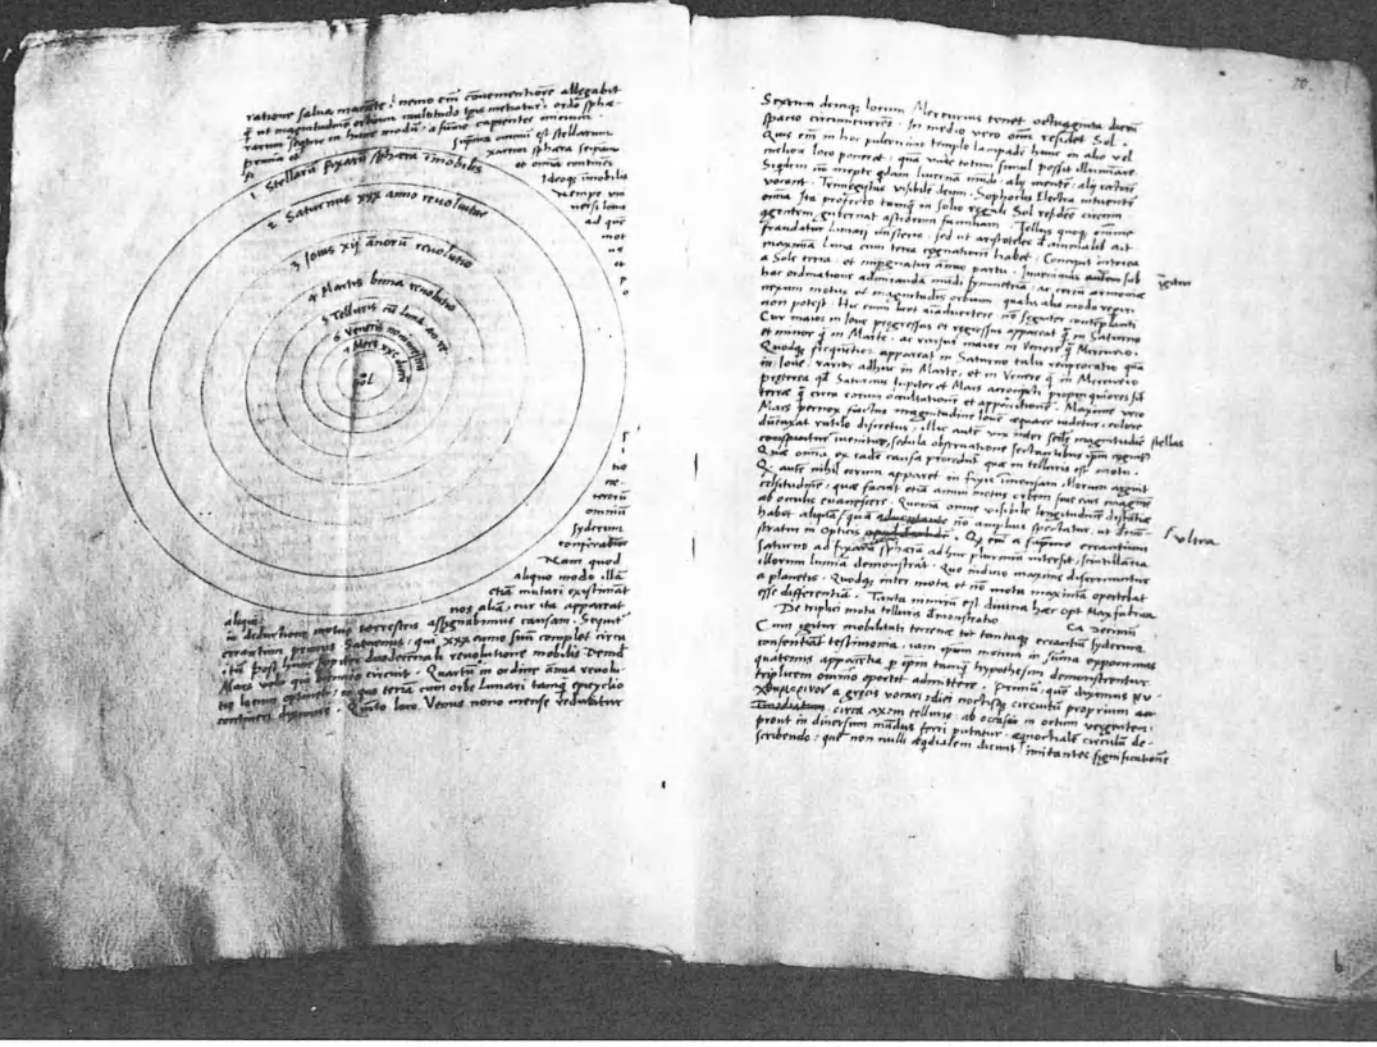 ratione salua manēte, nemo em̄ cōuenientiorē allegabit
q̄ ut magnitudinē orbium multitudo tp̄is metiatur, ordo sphæ-
rarum seqtur in hunc modū, a sūmo capientes initium.
prima et suprema omniū est stellarum
fixarum sphæra seipsam
et omnia continēs
Ideoqȝ īmobilis
Nempe vni
uersi locus
ad quē
mot
us
et
p
o
1 Stellarū fixarū sphæra īmobilis
2 Saturnus xxx anno reuoluitur
3 Iouis xij annorū reuolutio
4 Martis bima reuolutio
5 Telluris cū luna an. re.
6 Veneris nonimestris
7 Merc xxc dierū
Sol
s
i
tio
ce-
terorū
omniū
syderum
conferatur
Nam quod
aliquo modo illā
etiā mutari existimāt
aliqui nos aliā, cur ita appareat
in deductione motus terrestris assignabimus causam. Sequit̄
errantium primus Saturnus, qui XXX anno suū complet circu
itū. post hunc Iupiter duodecennali reuolutione mobilis. Deinde
Mars volu qui biennio circuit. Quartū in ordine ānua reuolu-
tio locum optinet, in quo terrā cum orbe Lunari tamqȝ epicyclio
contineri diximus. Quīto loco Venus nono mense reducitur
20.
Sextum deniqȝ locum Mercurius tenet octuaginta dierū
spacio circumcurrēs. In medio vero omniū residet Sol.
Quis em̄ in hoc pulcerrimo templo lampadē hanc in alio vel
meliori loco poneret, quā vnde totum simul possit illuminare.
Siqdem nō inepte qdam lucernā mūdi, alij mentē, alij rectorē
vocant. Trimegistus visibilē deum, Sophoclis Electra intuentē
omnia. Ita profecto tamqȝ in solio regali Sol residēs circum
agentem gubernat astrorum familiam. Tellus quoqȝ minime
fraudatur lunari ministerio, sed ut aristoteles de animalib ait
maximā Luna cum terra cognationē habet. Concipit interea
a Sole terra, et impregnatur ānuo partu. Inuenimus igitur sub
hac ordinatione admirandā mūdi symmetriā, ac certū armoniæ
nexum motus et magnitudinis orbium, qualis alio modo reperiri
non potest. Hic enim licet aīaduertere nō segniter contēplanti
Cur maior in Ioue progressus et regressus appareat q̄ in Saturno
et minor q̄ in Marte, ac rursus maior in Venere q̄ Mercurio.
Quodqȝ frequētior appareat in Saturno talis reciprocatio quā
in Ioue, rarior adhuc in Marte, et in Venere q̄ in Mercurio
præterea qd Saturnus Iupiter et Mars acronycti propinquiores sīt
terræ q̄ circa eorum occultationē et apparitionē. Maxime vero
Mars pernox factus magnitudine Iouē æquare videtur, colore
dūtaxat rutilo discretus, illic autē vix inter secūdę magnitudīs stellas
inuenitur, sedula obseruatione sectantibus ipm̄ cognitus
Quæ omnia ex eadē causa procedūt quæ in telluris est motu.
Qȝ autē nihil eorum apparet in fixis īmensam illorum arguit
celsitudinē, quæ faciat etiā annui motus orbem siue eius imaginē
ab oculis euanescere. Quoniā omne visibile longitudinē distātiæ
habet aliquā, ultra quā nō amplius spectatur, ut demō-
stratur in opticis. Qȝ em̄ a supremo errantium
Saturno ad fixarū sphærā adhuc plurimū intersit, scintillantia
illorum lumina demonstrāt. Quo indicio maxime discernuntur
a planetis. Quodqȝ inter mota et nō mota maximā oportebat
esse differentiā. Tanta nimirū est diuina hæc Opt. Max. fabrica
De triplici motu telluris demonstratio
Cum igitur mobilitati terrenæ tot tantaqȝ errantiū syderum
consentiāt testimonia, iam ipsum motum in sūma exponemus
quatenus apparētia p ipsm tamqȝ hypothesim demonstrentur
triplicem omnino oportet admittere. Primū, quē diximus νυ-
χθημερινὸν a græcis vocari, diei noctisqȝ circuitū proprium
circa axem telluris, ab occasu in ortum vergentem,
prout in diuersum mūdus ferri putatur, æquinoctialē circulū de-
scribendo, quē non nulli æqdialem dicunt, imitantes significationē
igitur
ultra
b